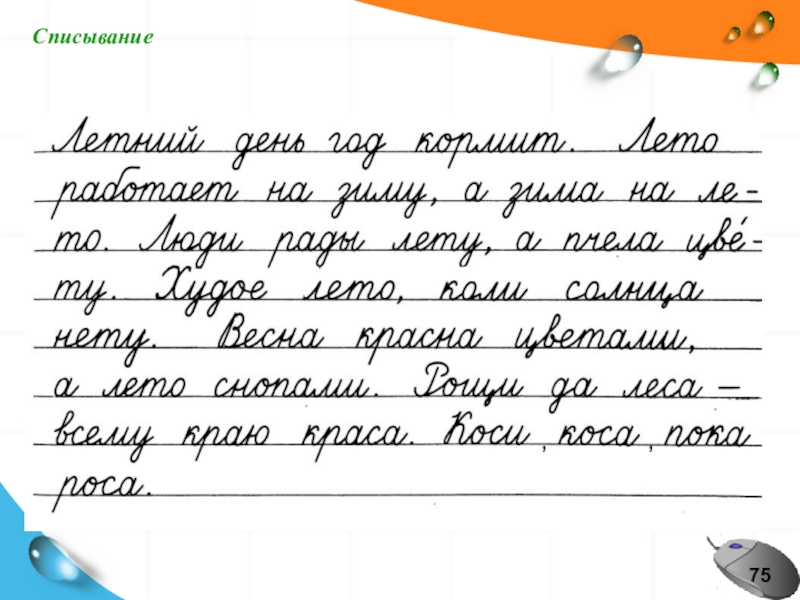 Списывание
Летний день год кормит. Лето
работает на зиму, а зима на ле-
то. Люди рады лету, а пчела цве́-
ту. Худое лето, коли солнца
нету. Весна красна цветами,
а лето снопами. Рощи да леса –
всему краю краса. Коси , коса , пока
роса.
75